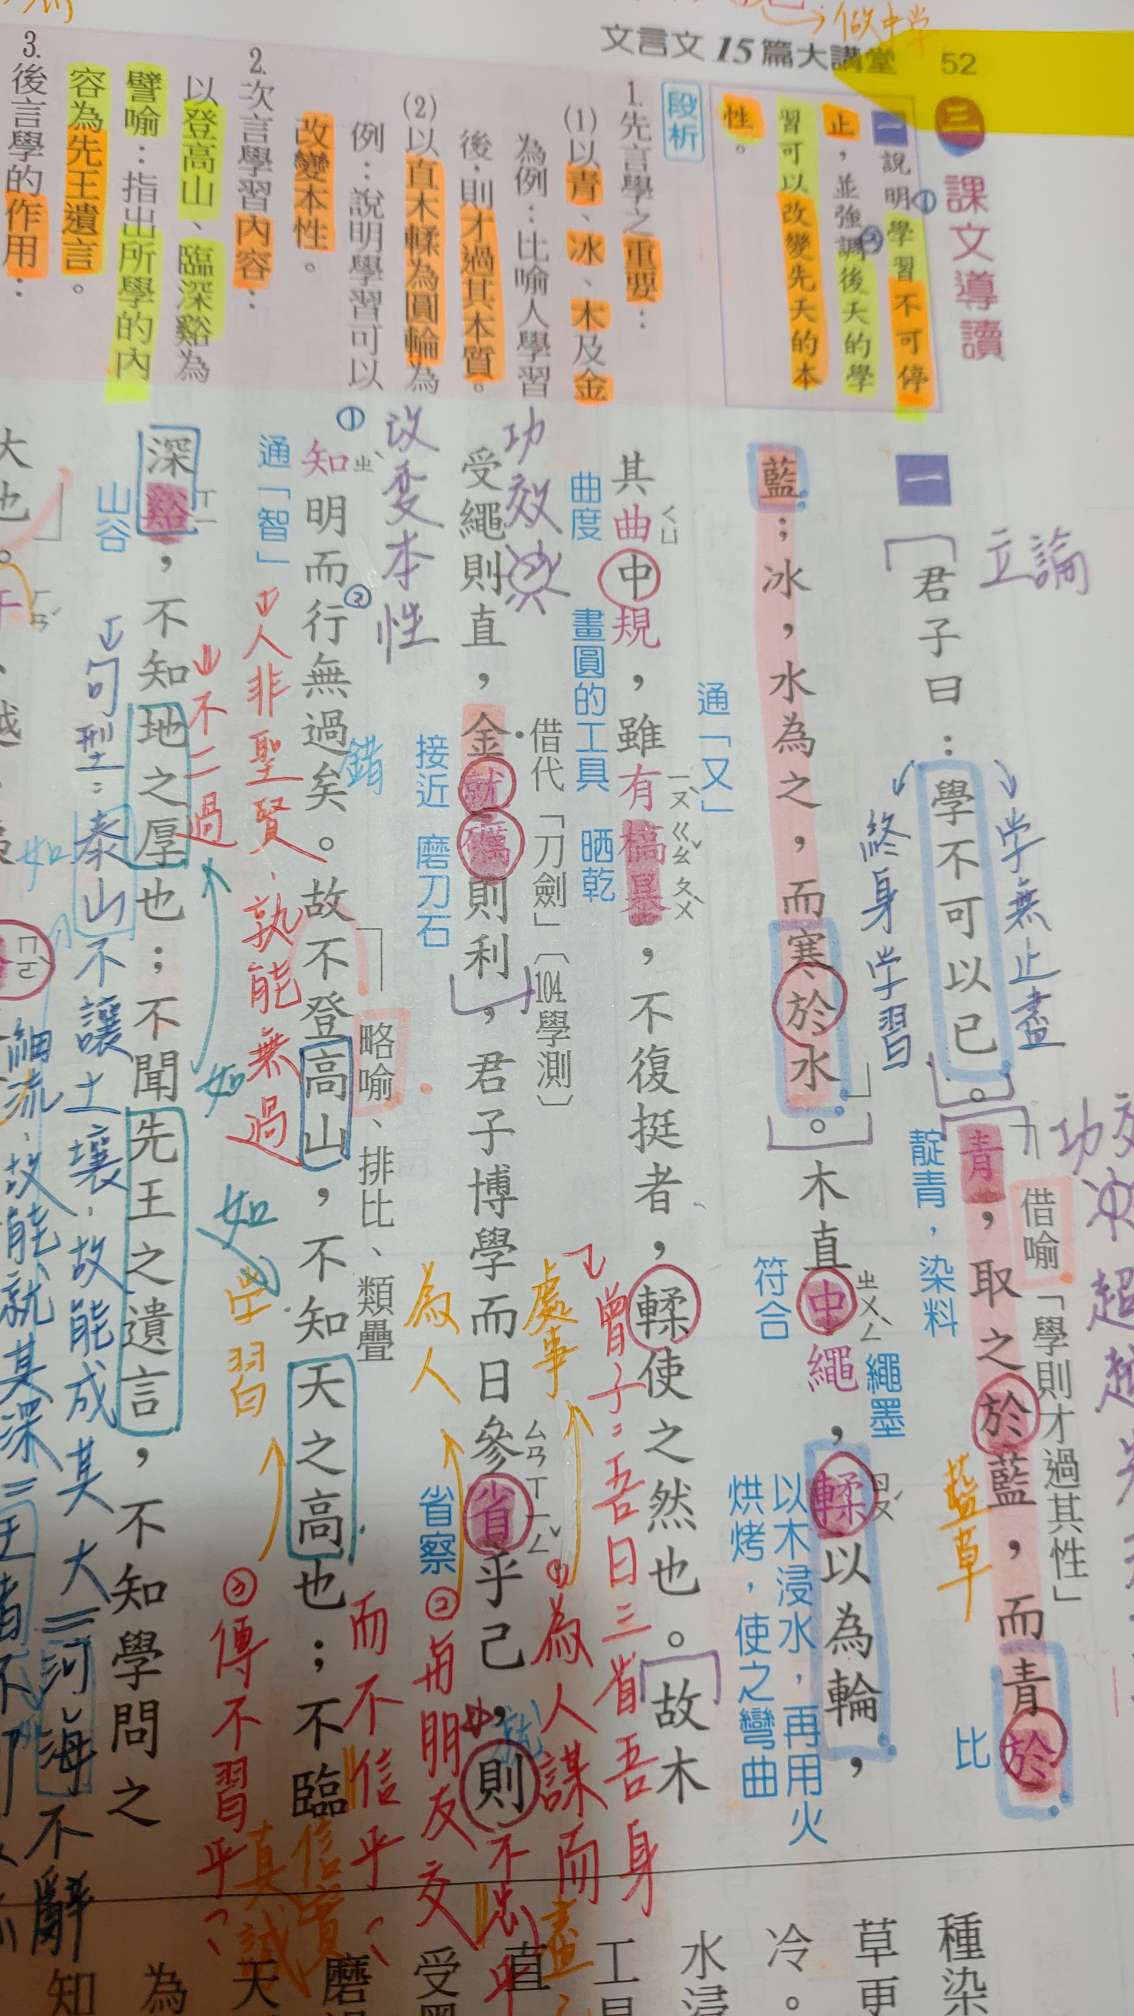 文言文15篇大講堂 52
三 課文導讀
一 說明學習不可停
止，並強調後天的學
習可以改變先天的本
性。
段析
1.先言學之重要：
(1)以青、冰、木及金
為例：比喻人學習
後，則才過其本質。
(2)以直木輮為圓輪為
例：說明學習可以
改變本性。
2.次言學習內容：
以登高山、臨深谿為
譬喻：指出所學的內
容為先王遺言。
3.後言學的作用：
做中学
一
君子曰：學不可以已。青，取之於藍，而青於
立論
学無止盡
終身学習
借喻「學則才過其性」
靛青，染料
藍草
比
藍；冰，水為之，而寒於水。木直中繩，輮以為輪，
ㄓㄨㄥˋ
繩墨
符合
ㄖㄡˊ
以木浸水，再用火
烘烤，使之彎曲
通「又」
其曲中規，雖有槁暴，不復挺者，輮使之然也。故木
ㄑㄩ
ㄧㄡˋ ㄍㄠˇ ㄆㄨˋ
曲度
畫圓的工具
晒乾
受繩則直，金就礪則利，君子博學而日參省乎己，則
功效
借代「刀劍」〔104學測〕
接近
磨刀石
ㄘㄢ ㄒㄧㄥˇ
省察
處事
為人
学習
曾子：吾日三省吾身
①為人謀而不忠乎
②與朋友交
而不信乎
③傳不習乎
改變本性
①
知明而行無過矣。故不登高山，不知天之高也；不臨
ㄓˋ
②
錯
通「智」
略喻、排比、類疊
人非聖賢，孰能無過
不二過
深谿，不知地之厚也；不聞先王之遺言，不知學問之
ㄒㄧ
山谷
如
句型：泰山不讓土壤，故能成其大＝河海不辭
細流，故能就其深＝王者不
大也。
真誠
信實
種染
草更
冷。
水浸
工具
直
受墨
磨
天
為
知